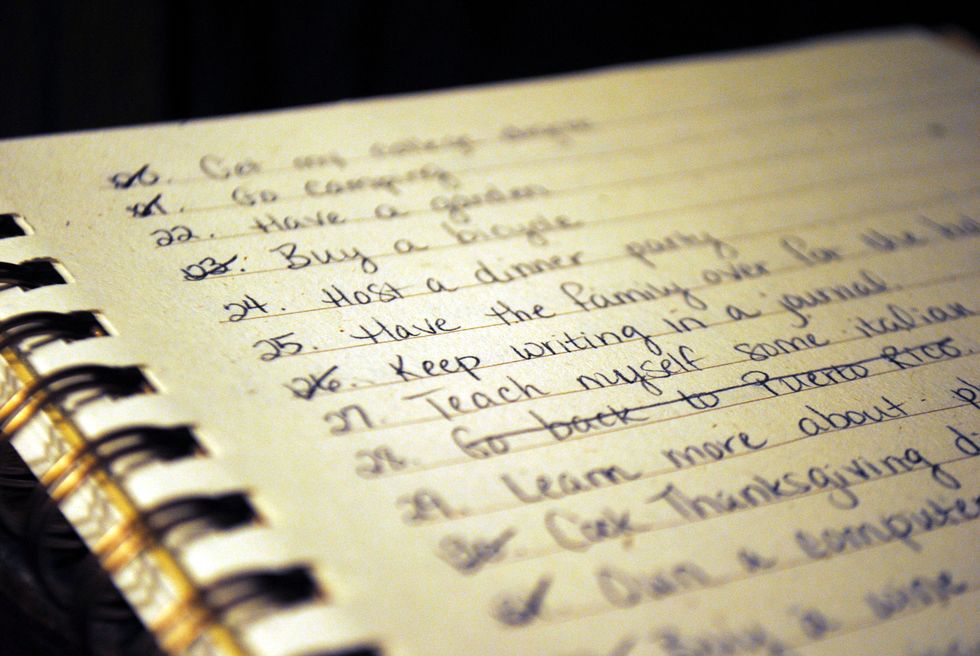 20. Get my college degree
21. Go camping
22. Have a garden
23. Buy a bicycle
24. Host a dinner party
25. Have the family over for the
26. Keep writing in a journal.
27. Teach myself some italian
28. Go back to Puerto Rico.
29. Learn more about
30. Cook Thanksgiving
31. Own a computer
Buy a